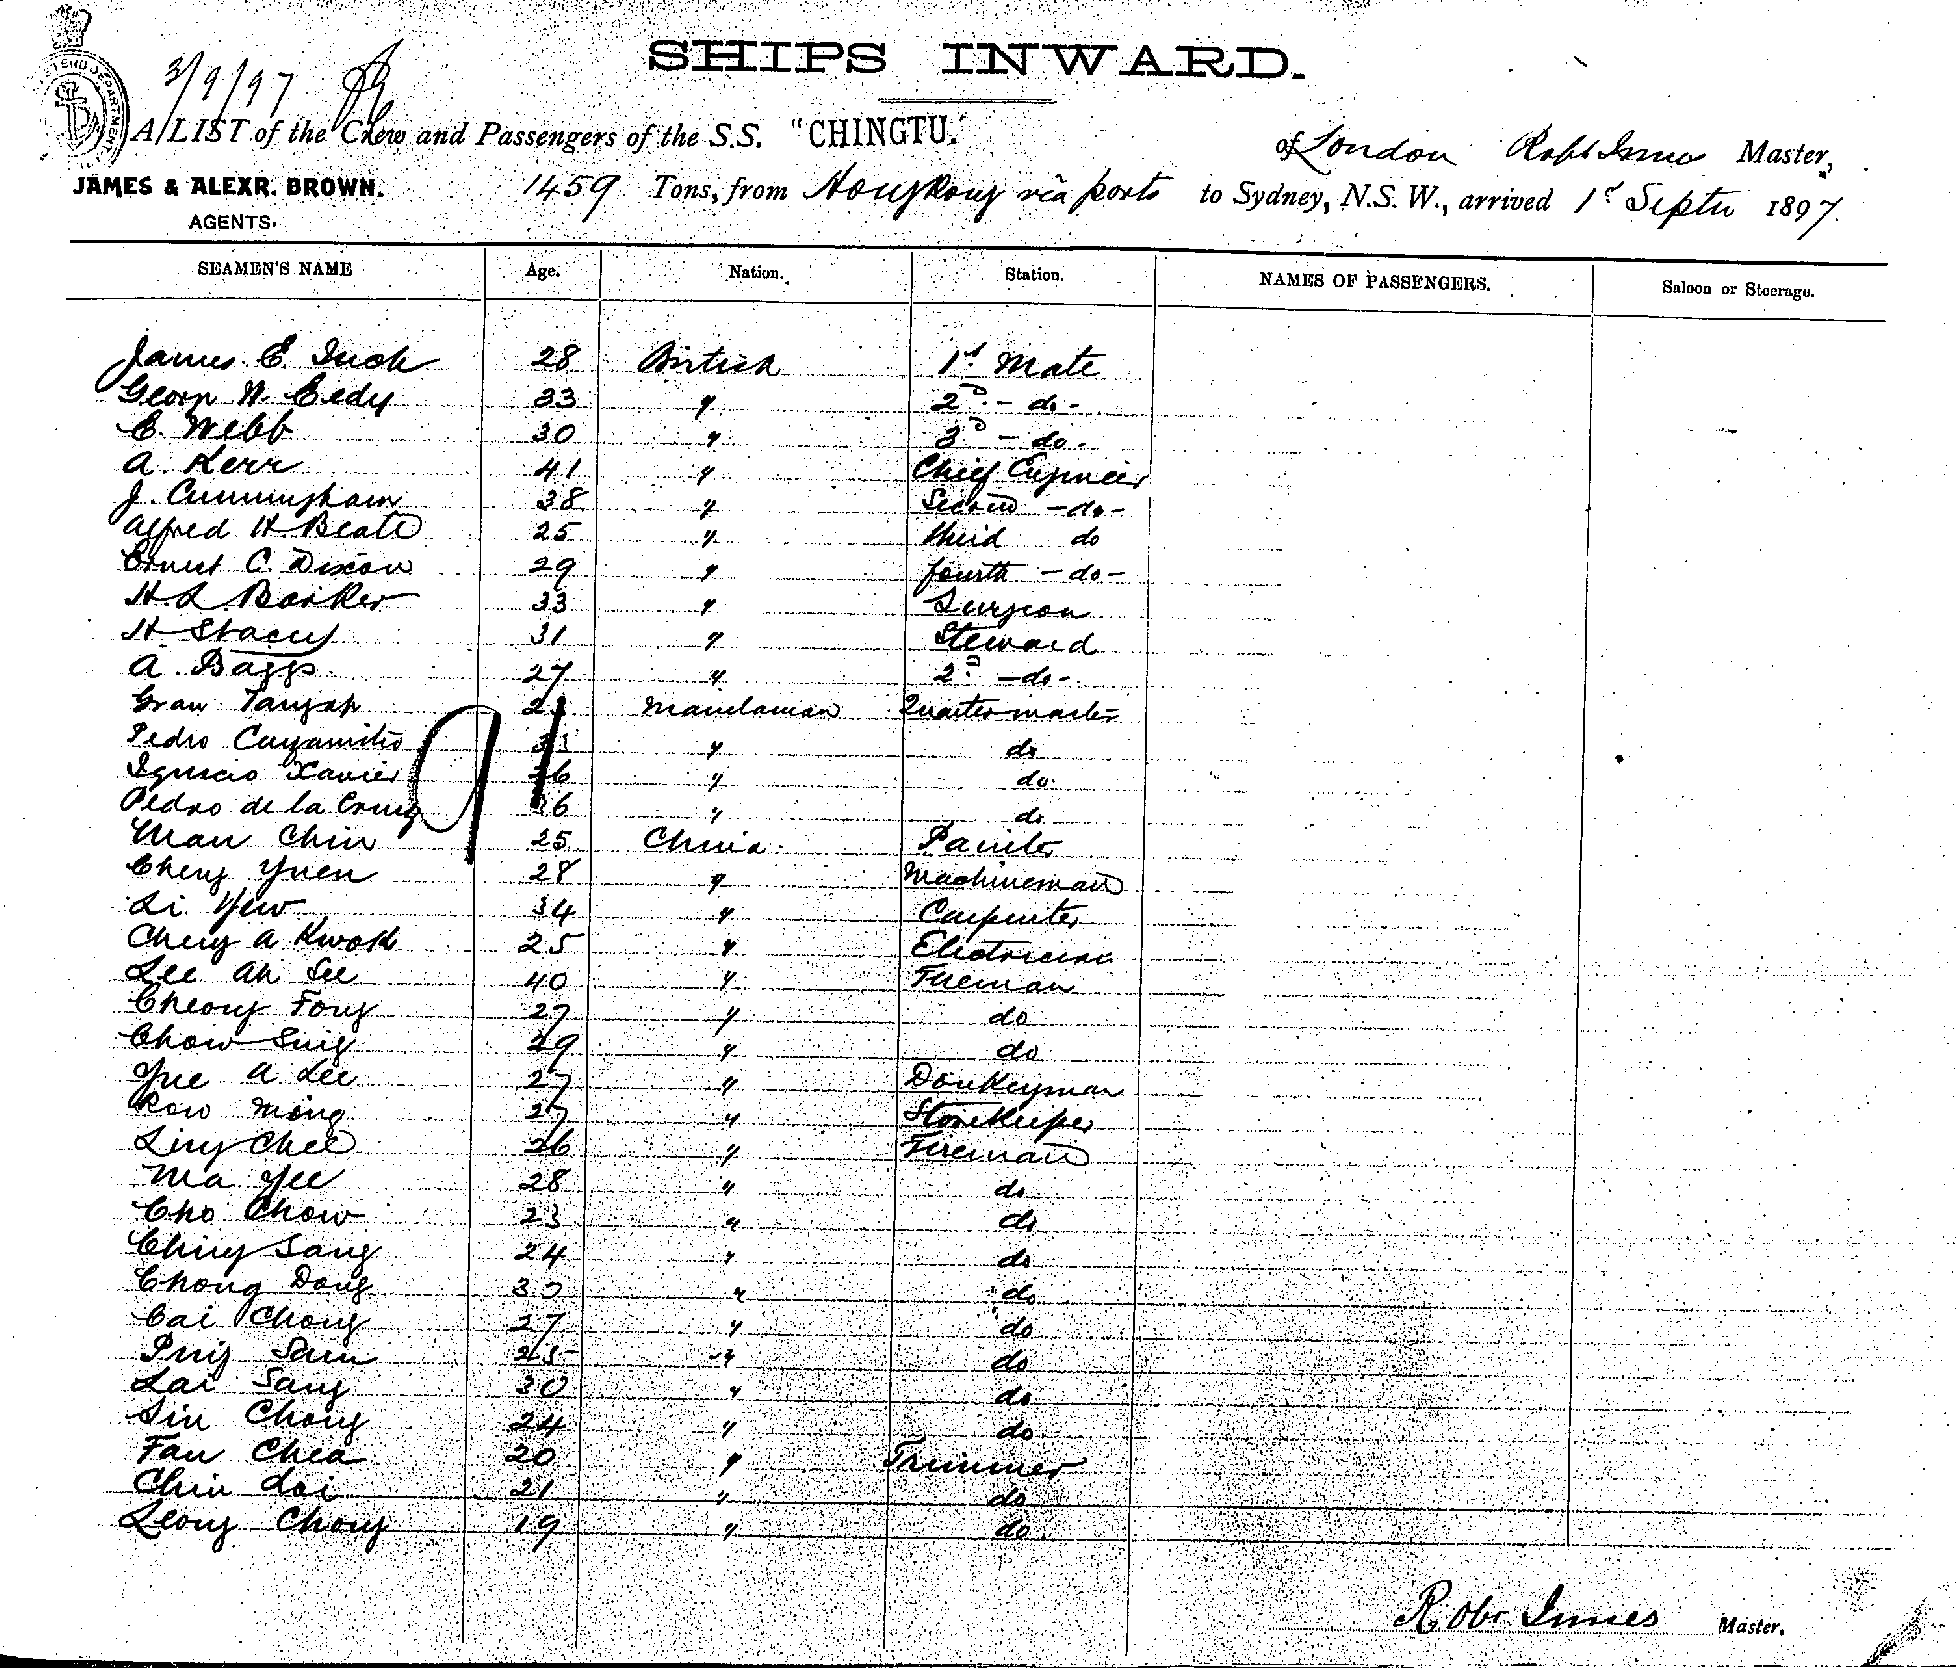 SHIPS INWARD.
3/9/97
A LIST of the Crew and Passengers of the S.S. "CHINGTU." of London Robt Innes Master,
JAMES & ALEXR. BROWN. 1459 Tons, from Hongkong via ports to Sydney, N.S.W., arrived 1st Septr 1897.
AGENTS.
SEAMEN'S NAME Age. Nation. Station. NAMES OF PASSENGERS. Saloon or Steerage.
James E. Inch 28 British 1st Mate
George W. Eedy 33 " 2D. - do -
E. Webb 30 " 3D - do -
A. Kerr 41 " Chief Engineer
J. Cunningham 38 " Second - do -
Alfred H Beate 25 " third do
Ernest C. Dixon 29 " fourth - do -
H. L Barker 33 " Surgeon
H Stacey 31 " Steward
A. Baggs 27 " 2D. - do -
Gran Tangap Manilaman Quartermaster
Pedro " do
Ignacio Xavier 26 " do
Pedro de la Cruz 36 " do
Man Chin 25 China Painter
Cheng Yuen 28 " Machineman
Li Yuw 34 " Carpenter
Cheng A Kwok 25 " Electrician
Lee Ah See 40 " Fireman
Cheong Fong 27 " do
Chow Sing 29 " do
Yue A Lee 27 " Donkeyman
Kow Ming 27 " Storekeeper
Ling Chee 26 " Fireman
Ma Yee 28 " do
Cho Chow 23 " do
Ching Sang 24 " do
Chong Dong 30 " do
Cai Chong 27 " do
Ping Sam 25 " do
Lai Sang 30 " do
Sin Chong 24 " do
Fan Chea 20 " Trimmer
Chin Loi 21 " do
Leong Chong 19 " do
Robt Innes Master.